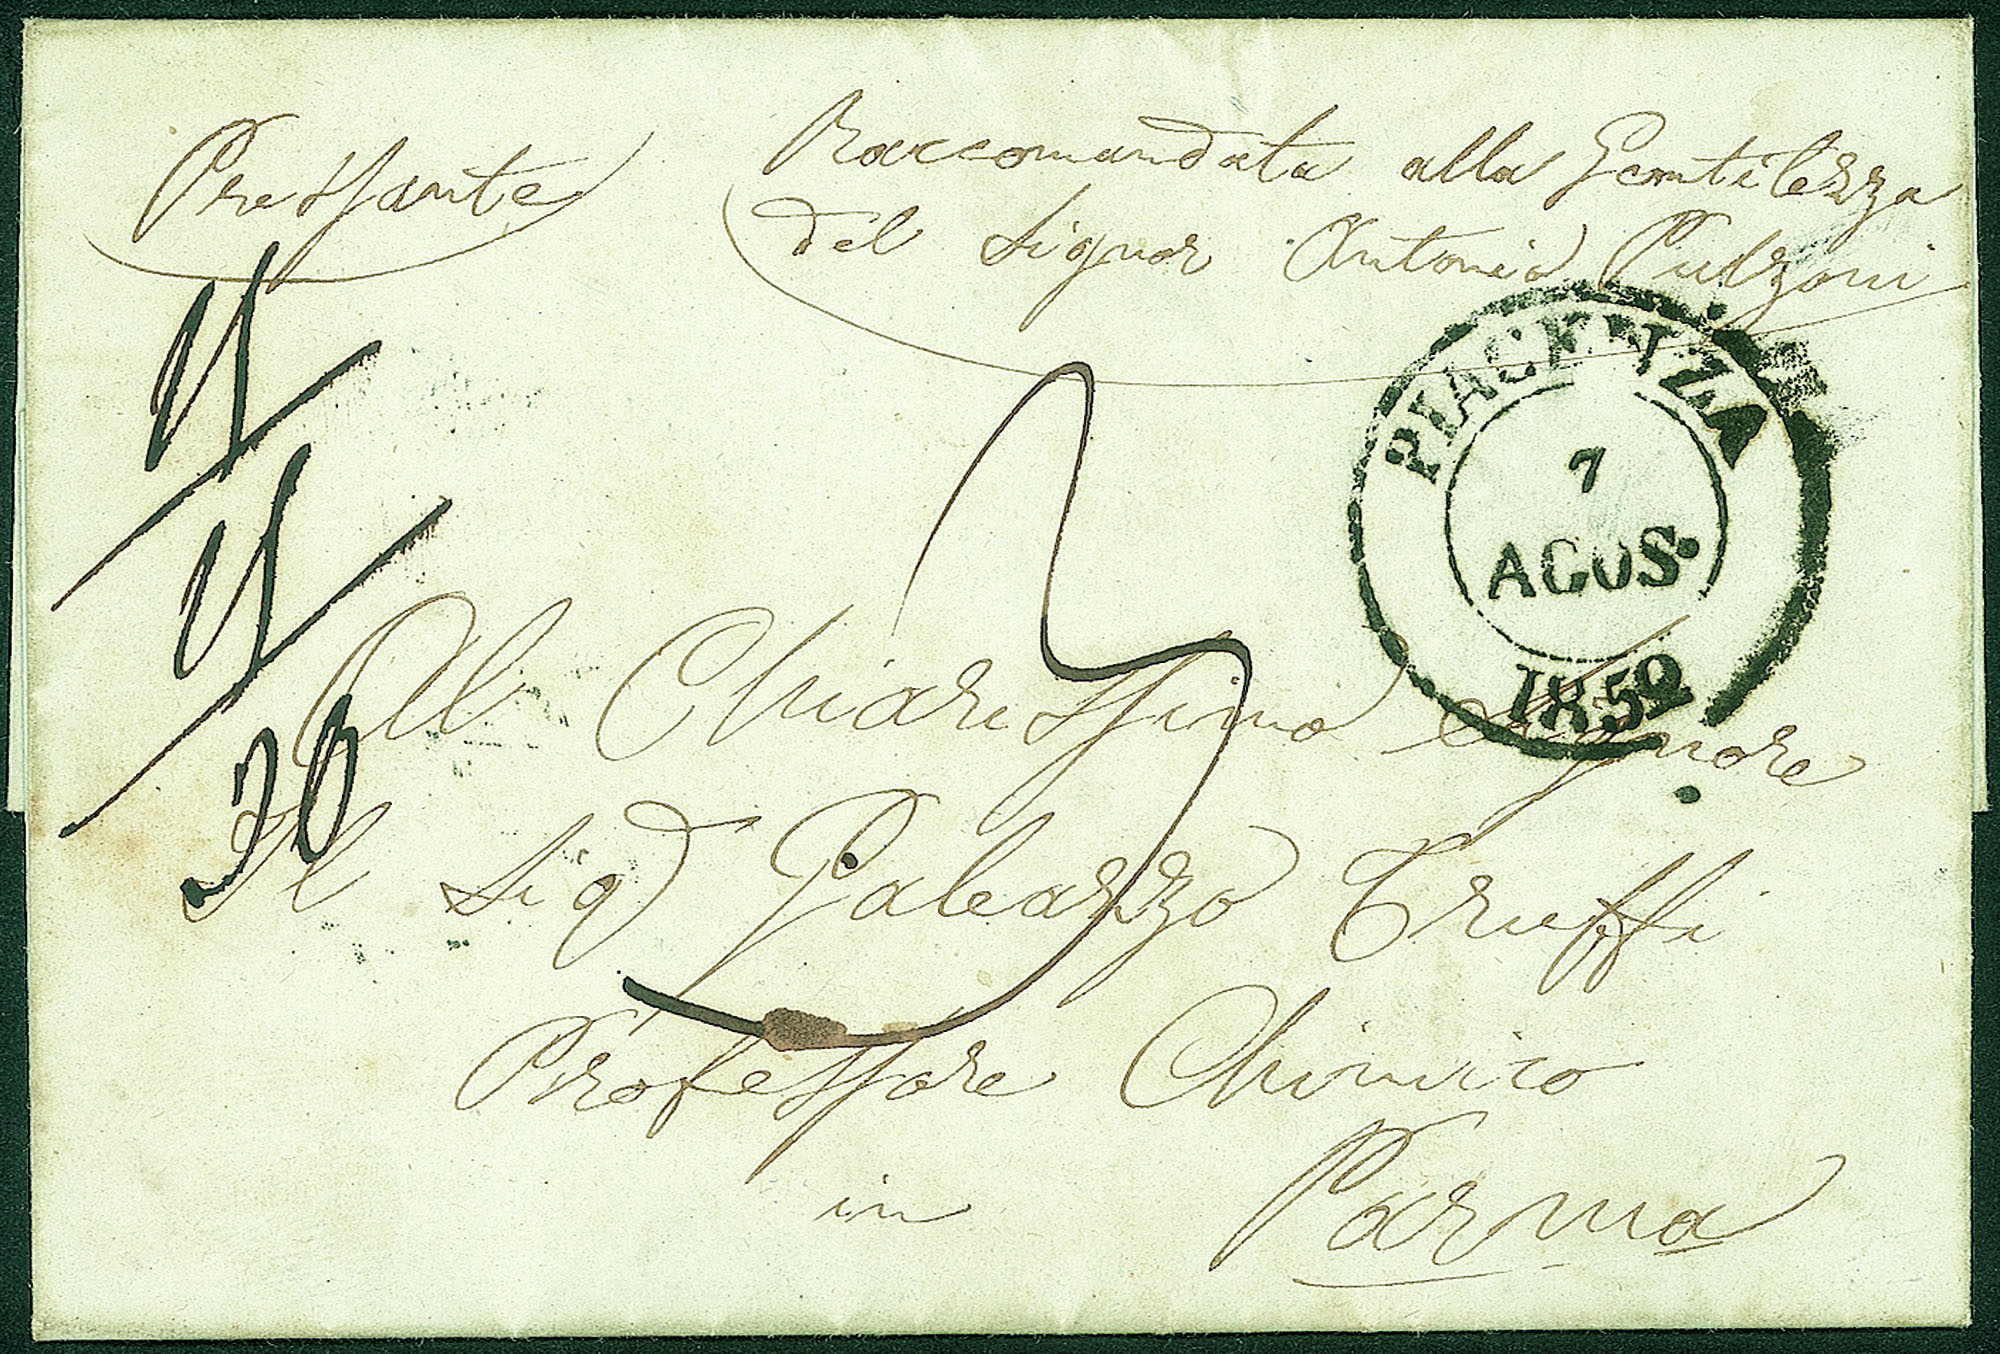 Pressante
Raccomandata alla Gentilezza
del Signor Antonio Pulzoni
PIACENZA
7
AGOS.
1852
3
Al Chiarissimo Signore
Il Sig Galeazzo Truffi
Professore Chimico
in
Parma